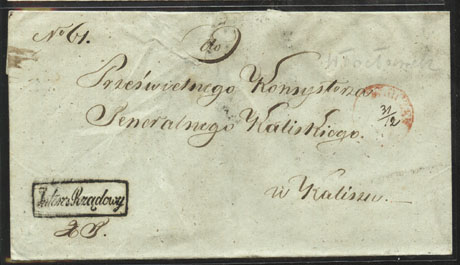 No 61.
do
Prześwietnego Konsystorza
Generalnego Kaliskiego.
31/12
w Kaliszu.
Interes Rządowy